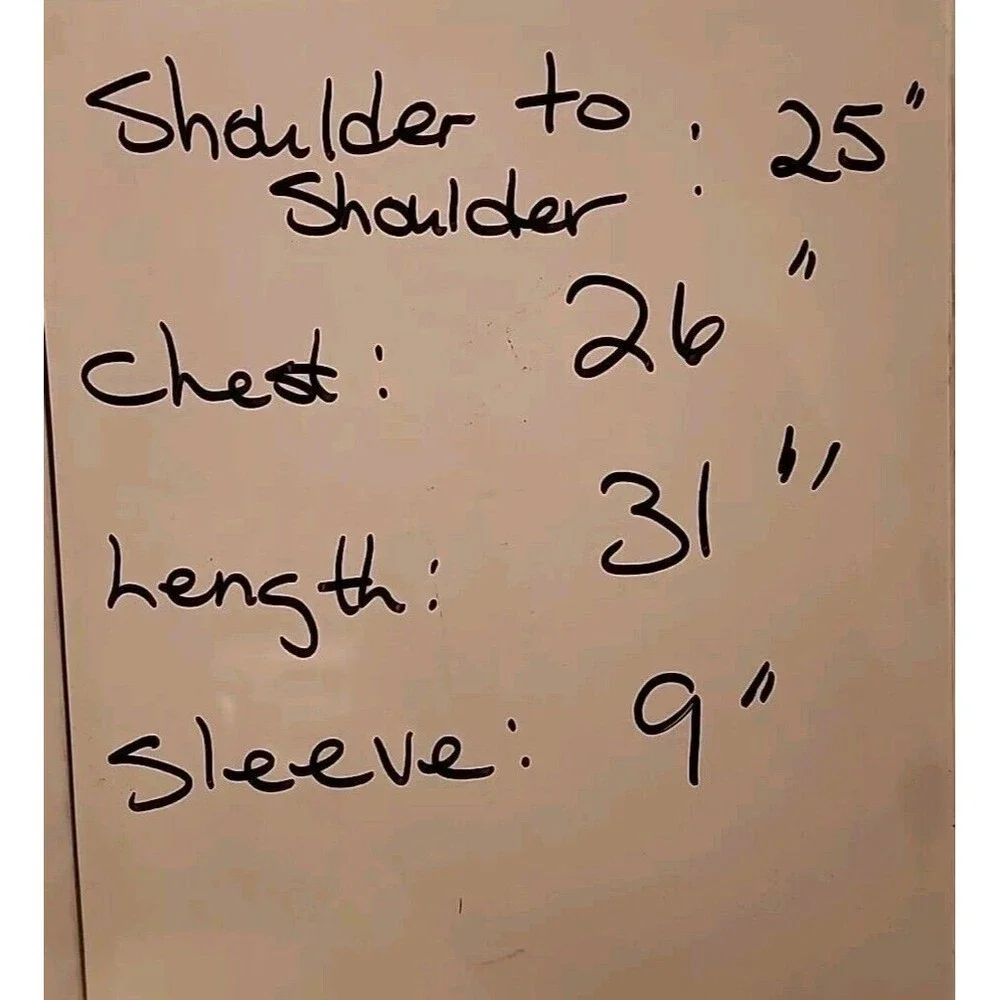 Shoulder to : 25"
Shoulder
Chest: 26"
Length: 31"
Sleeve: 9"